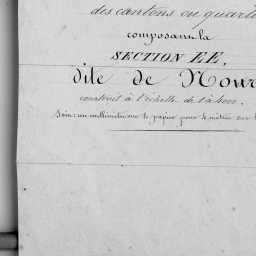 des cantons ou quartie
composant la
SECTION EE,
dite de Nour
construit à l'échelle de 1 à 1000.
Soit : un millimètre sur le papier pour 1 mètre sur le